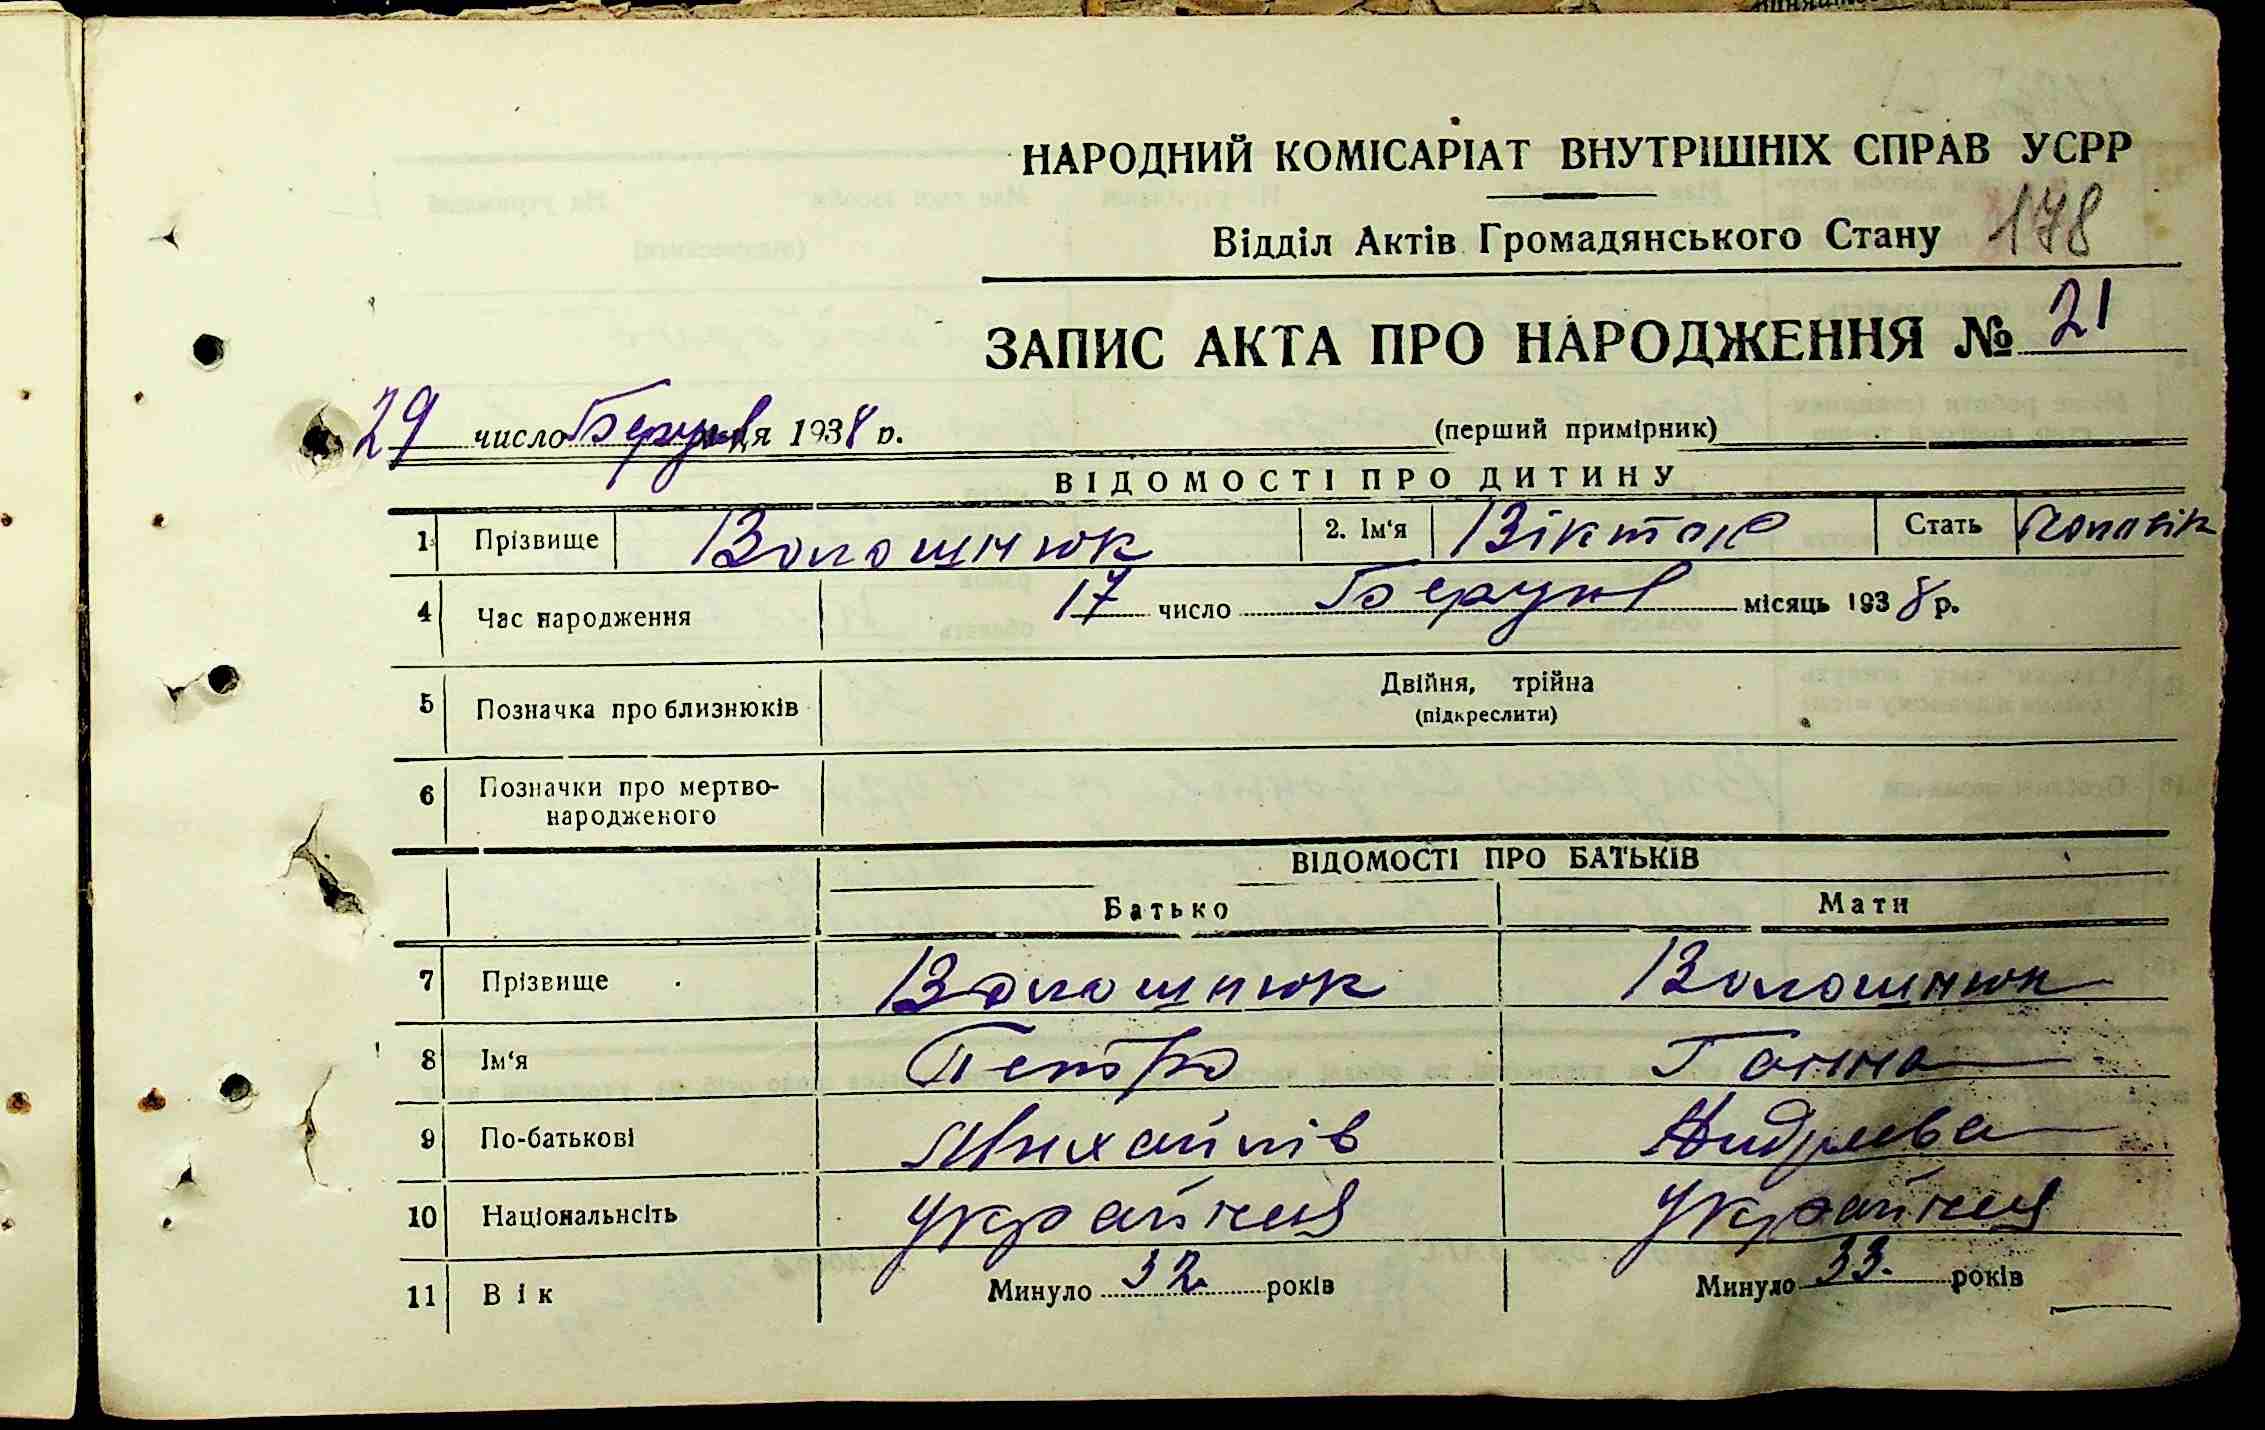 НАРОДНИЙ КОМІСАРІАТ ВНУТРІШНІХ СПРАВ УСРР
Відділ Актів Громадянського Стану 178
ЗАПИС АКТА ПРО НАРОДЖЕННЯ № 21
29 число місяця 1938 р. (перший примірник)
ВІДОМОСТІ ПРО ДИТИНУ
1 Прізвище Волошнюк 2. Ім'я Віктор Стать
4 Час народження 17 число місяць 1938 р.
5 Позначка про близнюків Двійня, трійна
(підкреслити)
6 Позначки про мертво-
народженого
ВІДОМОСТІ ПРО БАТЬКІВ
Батько Мати
7 Прізвище Волошнюк Волошнюк
8 Ім'я Петро Ганна
9 По-батькові Михайлів
10 Національнсіть
11 Вік Минуло 32 років Минуло 33. років